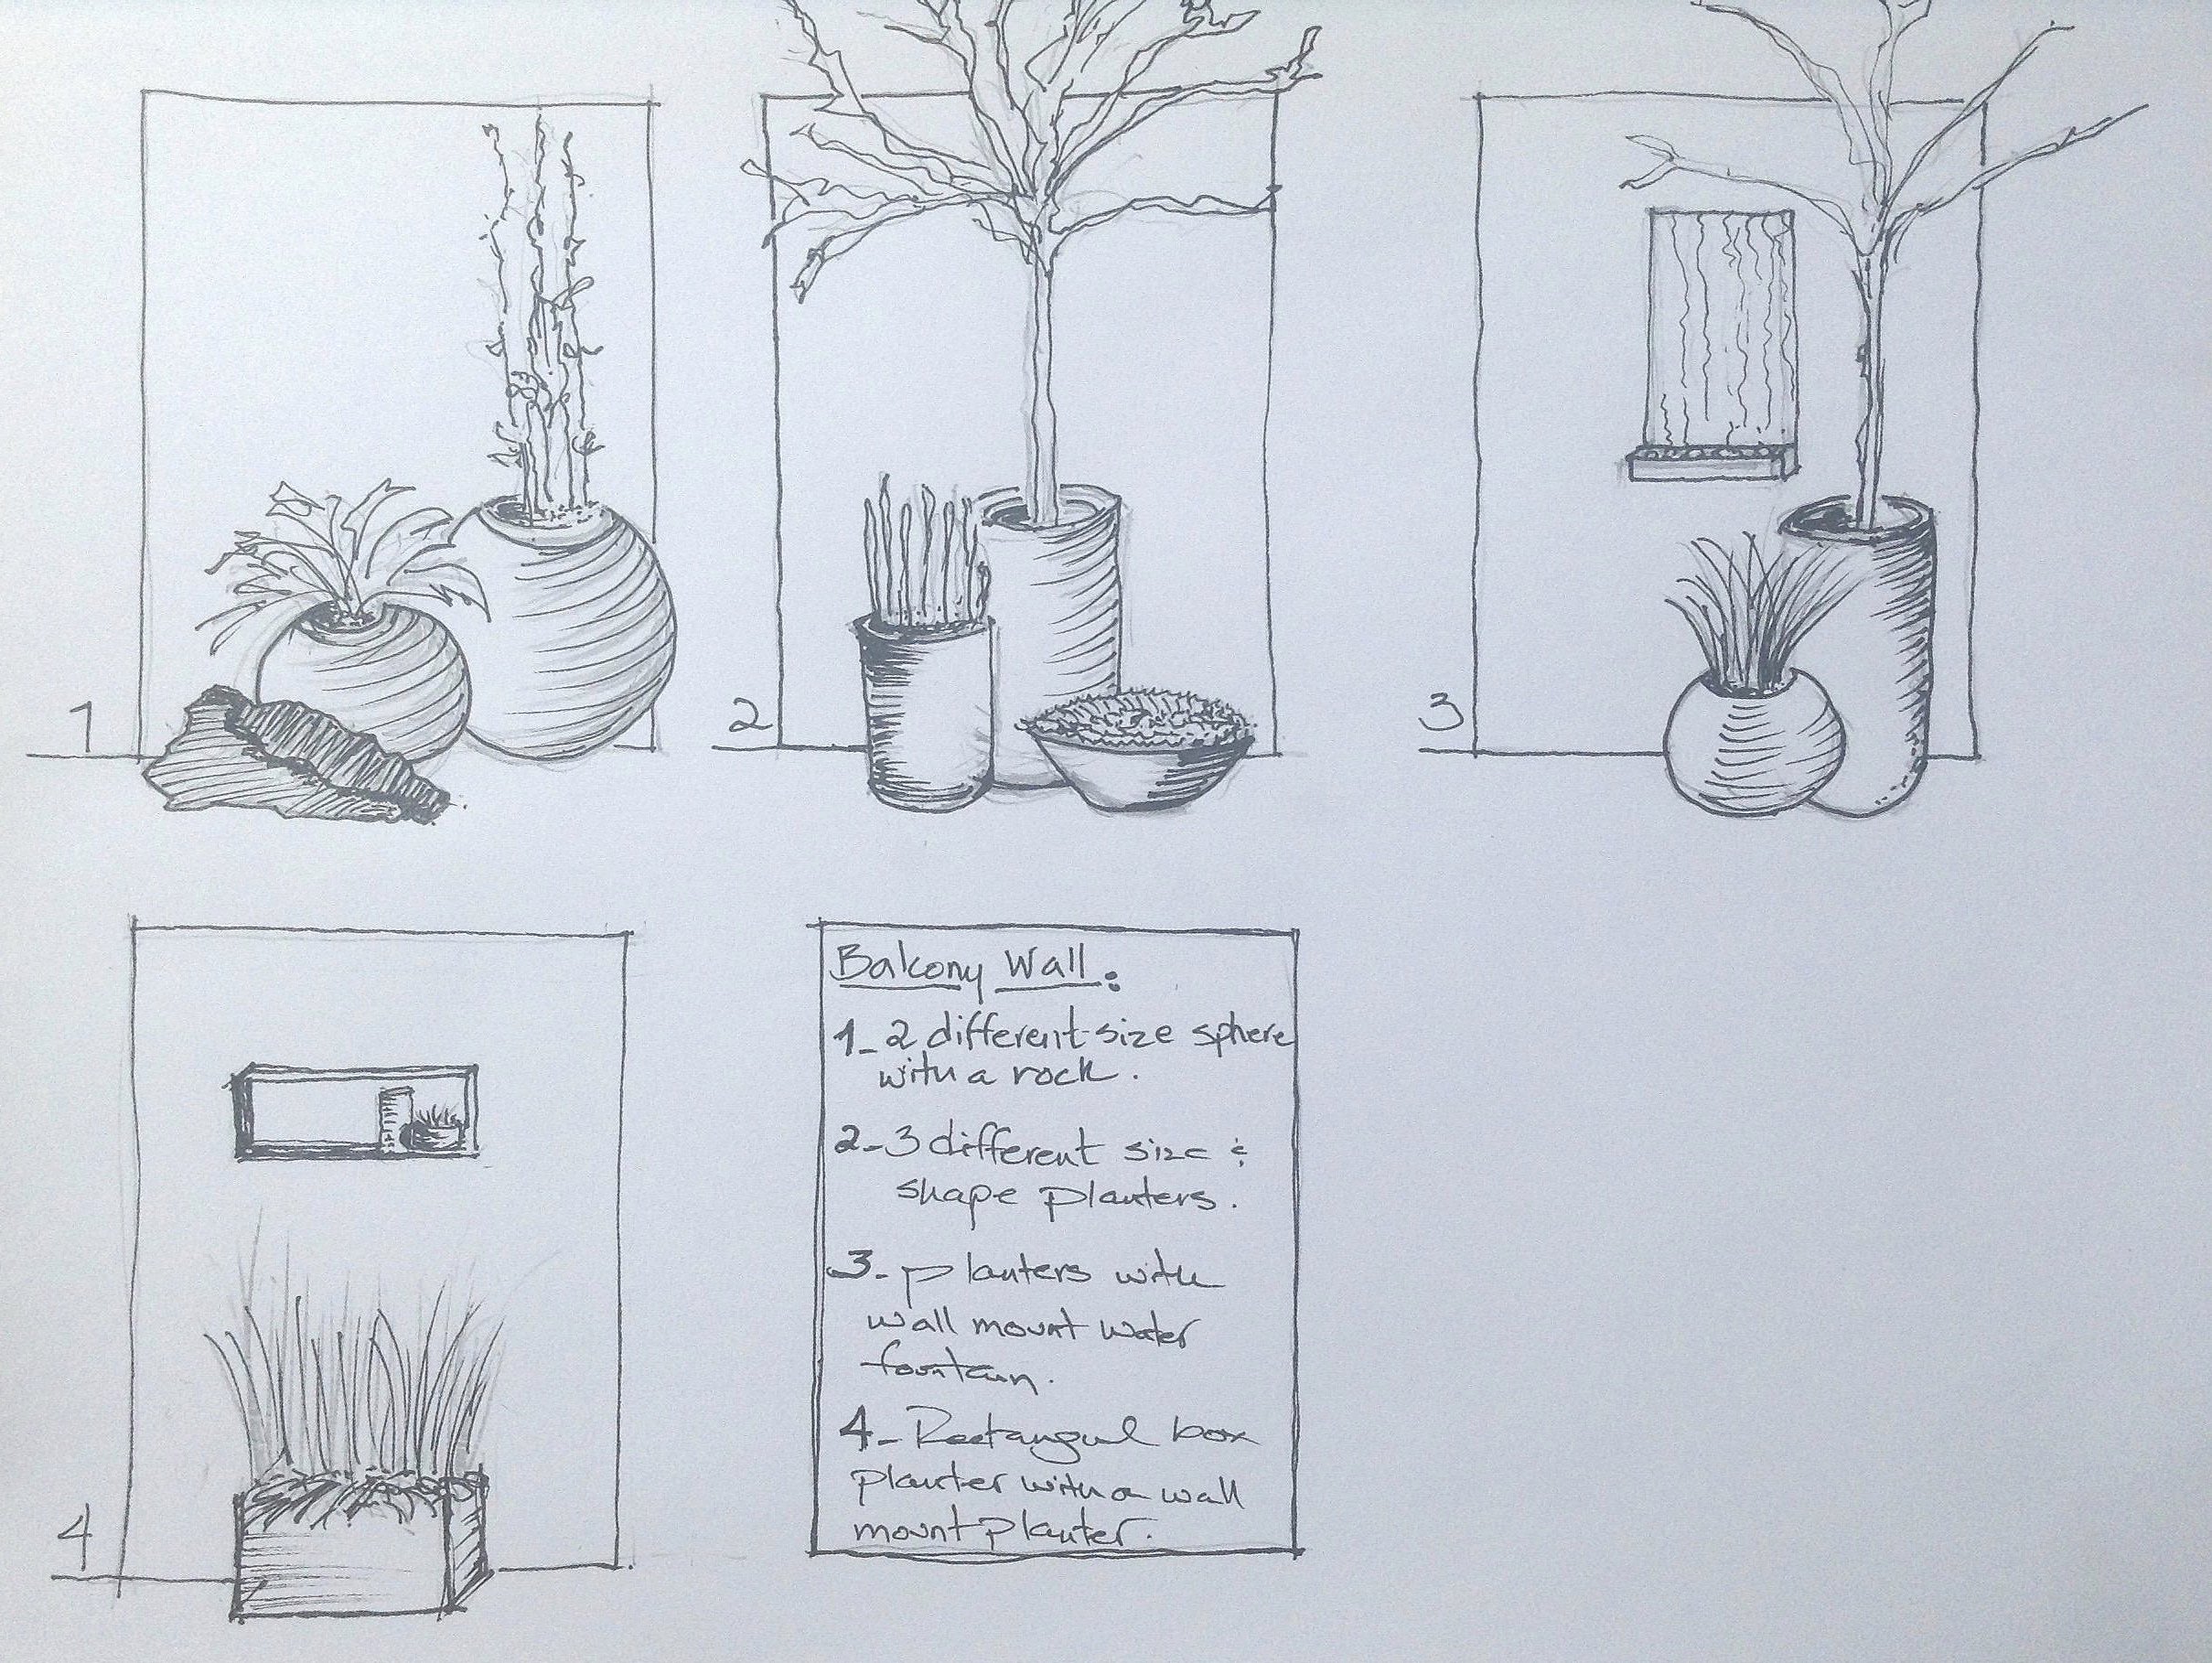 1
2
3
4
Balcony Wall:
1- 2 different size sphere
with a rock.
2- 3 different size &
shape planters.
3- planters with
wall mount water
fountain.
4- Rectangul box
planter with a wall
mount planter.